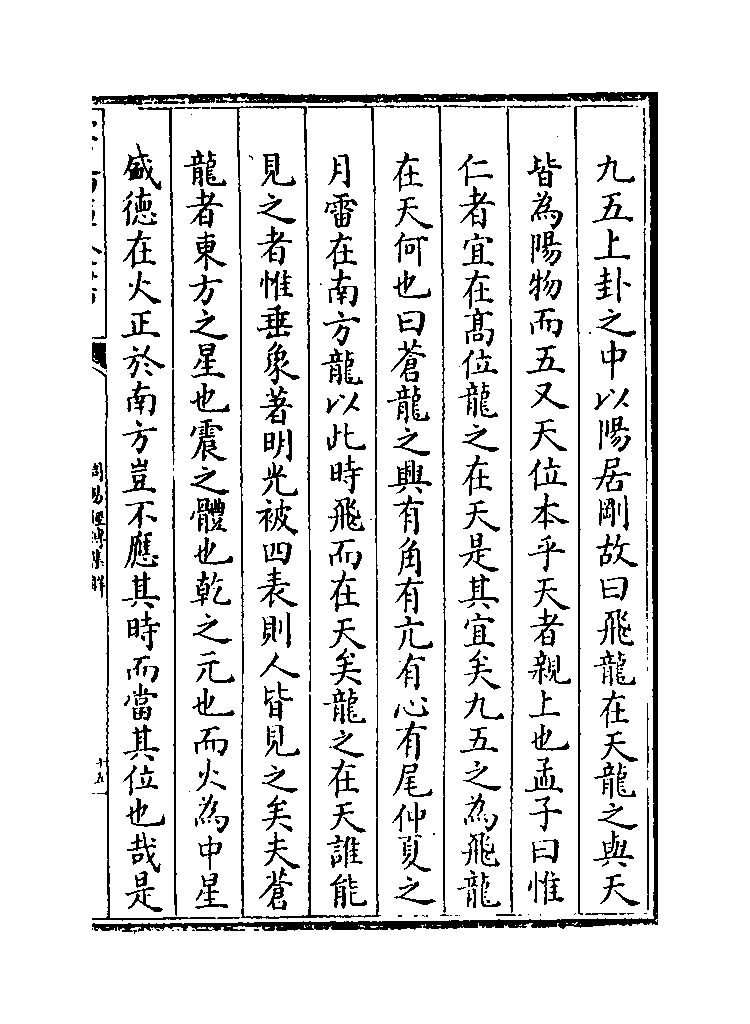 九五上卦之中以陽居剛故曰飛龍在天龍之與天
皆為陽物而五又天位本乎天者親上也孟子曰惟
仁者宜在髙位龍之在天是其宜矣九五之為飛龍
在天何也曰蒼龍之興有角有亢有心有尾仲夏之
月雷在南方龍以此時飛而在天矣龍之在天誰能
見之者惟垂象著明光被四表則人皆見之矣夫蒼
龍者東方之星也震之體也乾之元也而火為中星
盛德在火正於南方豈不應其時而當其位也哉是
周易經傳集解
十五